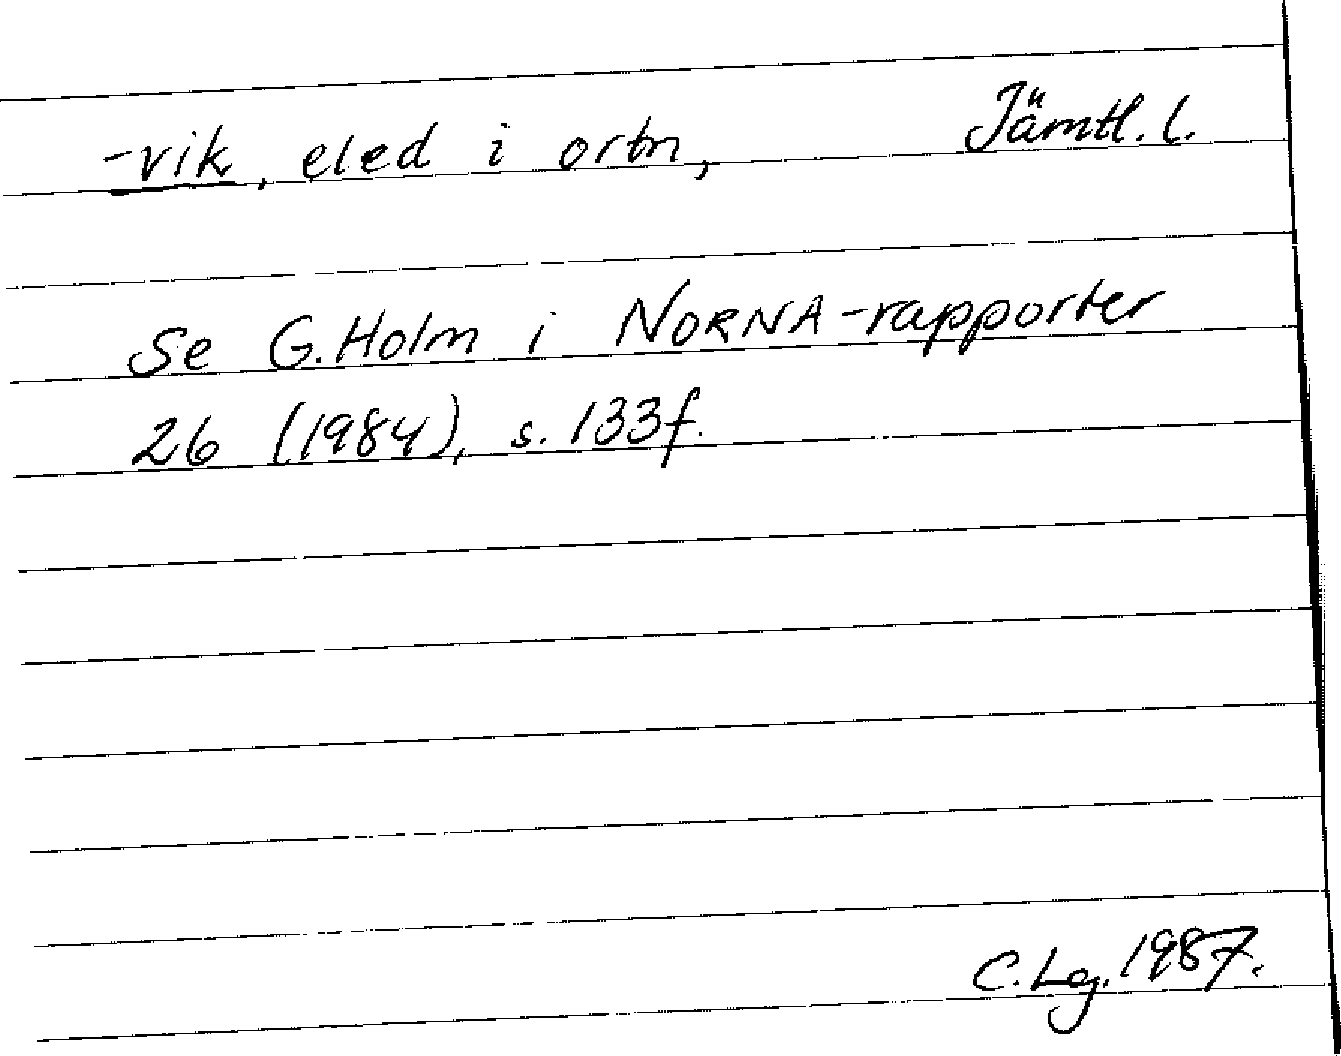 -vik, eled i ortn, Jämtl. l.
Se G. Holm i NORNA-rapporter
26 (1984), s. 133f.
C. Lg. 1987.